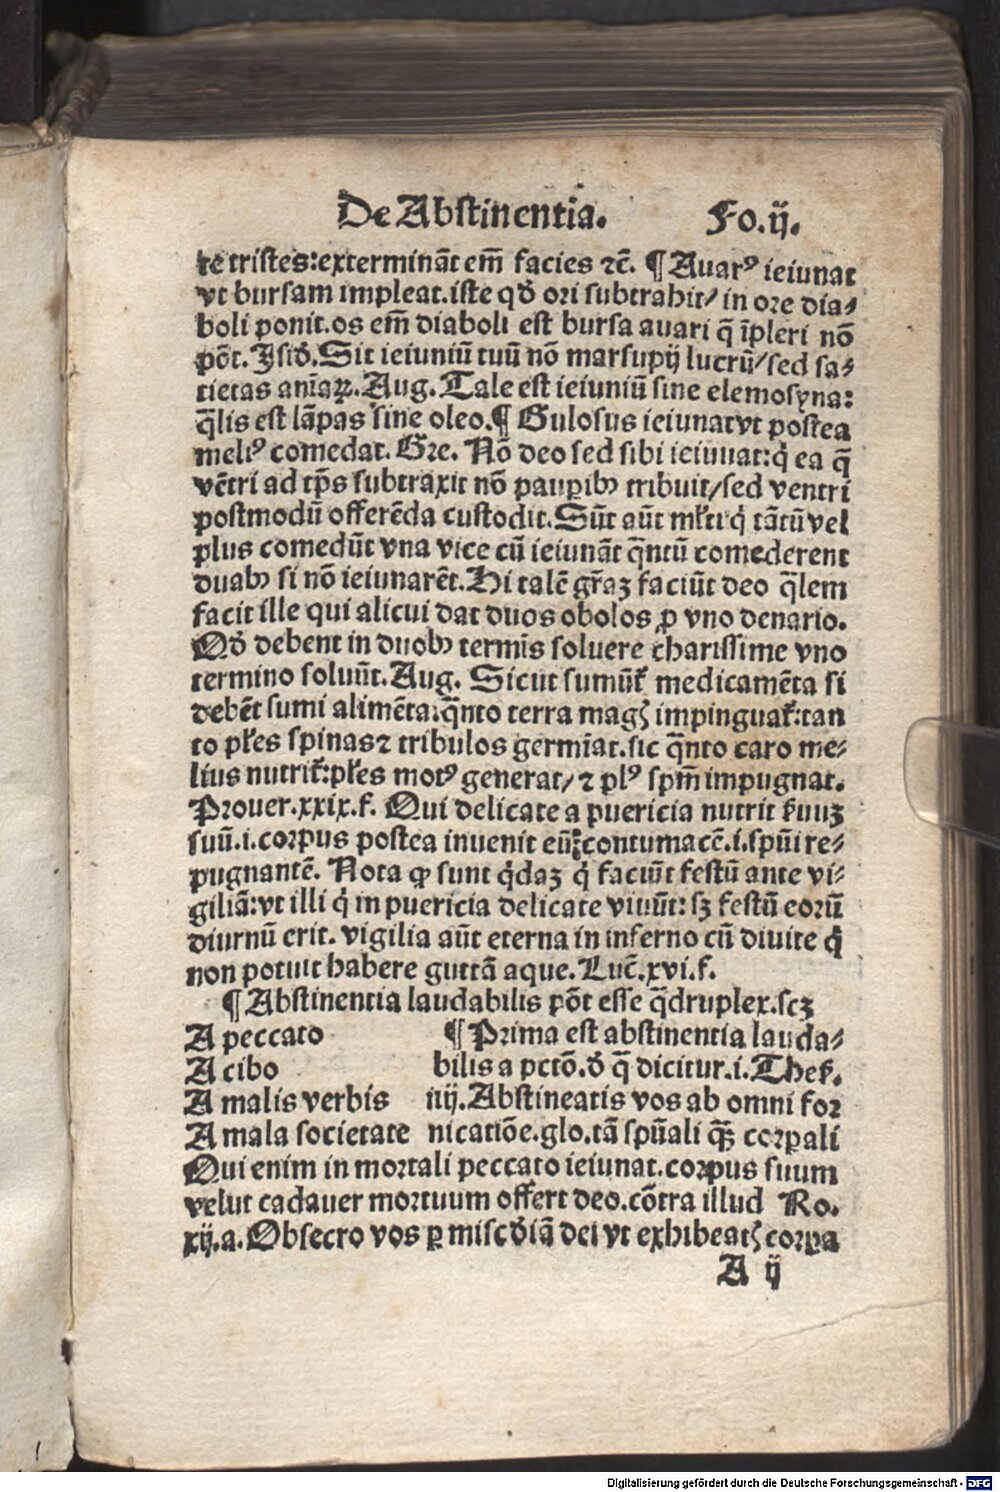 De Abstinentia. Fo.ij.
te tristes:exterminãt em̃ facies ⁊c̃. ¶ Auarꝰ ieiunat
vt bursam impleat.iste qđ ori subtrahit/ in ore dia⸗
boli ponit.os em̃ diaboli est bursa auari q̃ ĩpleri nõ
põt. Jsiđ. Sit ieiuniũ tuũ nõ marsupij lucrũ/sed sa⸗
tietas anĩaꝝ. Aug. Tale est ieiuniũ sine elemosyna:
q̃lis est lãpas sine oleo.¶ Gulosus ieiunat vt postea
meliꝰ comedat. Gre. Nõ deo sed sibi ieiunat:q̇ ea q̃
vẽtri ad tp̃s subtraxit nõ pauꝑibꝫ tribuit/sed ventri
postmodũ offerẽda custodit.Sũt aũt ml̃ti q̇ tãtũ vel
plus comedũt vna vice cũ ieiunãt q̃ntũ comederent
duabꝫ si nõ ieiunarẽt.Hi talẽ gr̃aꝫ faciũt deo q̃lem
facit ille qui alicui dat duos obolos ꝓ vno denario.
Qđ debent in duobꝫ termĩs soluere charissime vno
termino soluũt.Aug. Sicut sumũt᷑ medicamẽta si
debẽt sumi alimẽta:q̃nto terra magꝭ impinguat᷑:tan
to pl̃es spinas⁊ tribulos germĩat.sic q̃nto caro me⸗
lius nutrit᷑:pl̃es motꝰ generat/⁊ plꝰ spm̃ impugnat.
Prouer.xxix.f. Qui delicate a puericia nutrit ẜuuꝫ
suũ.i.corpus postea inuenit eũ:contumacẽ.i.spũi re⸗
pugnantẽ. Nota ꝙ sunt q̇daꝫ q̇ faciũt festũ ante vi⸗
giliã:vt illi q̇ in puericia delicate viuũt: sꝫ festũ eorũ
diurnũ erit. vigilia aũt eterna in inferno cũ diuite q̇
non potuit habere guttã aque.Luc̃.xvi.f.
¶ Abstinentia laudabilis põt esse q̃druplex.scꝫ
A peccato
A cibo
A malis verbis
A mala societate
¶ Prima est abstinentia lauda⸗
bilis a pctõ.đ q̃ dicitur.i.Thes.
iiij.Abstineatis vos ab omni for
nicatiõe.glo.tã spũali q̃ꝫ corꝑali
Qui enim in mortali peccato ieiunat.corpus suum
velut cadauer mortuum offert deo.cõtra illud Ro.
xij.a.Obsecro vos ꝑ miscđiã dei vt exhibeatꝭ corpa
A ij
Digitalisierung gefördert durch die Deutsche Forschungsgemeinschaft - DFG